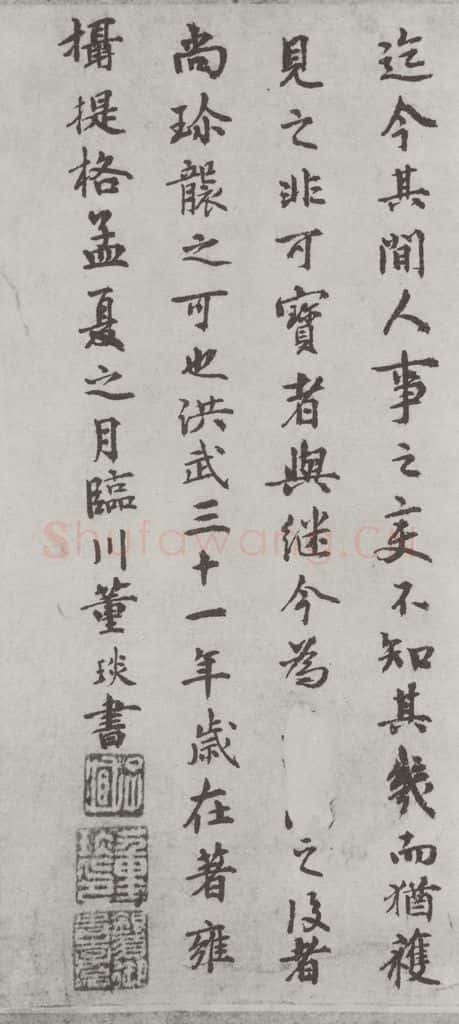 迄今其間人事之変不知其幾而猶獲
見之非可寶者與继今為之後者
尚珎襲之可也洪武三十一年歲在著雍
攝提格孟夏之月臨川董琰書
Shufawang.cn